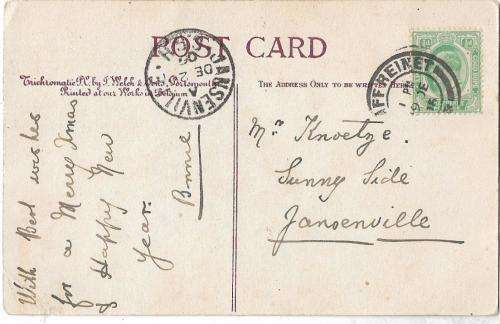 POST CARD
Trichromatic P.C. by J. Welch & Sons, Portsmouth
Printed at our Works in Belgium
THE ADDRESS ONLY TO BE WRITTEN HERE
JANSENVILLE
DE
A
AFF REINET
PM
DE
With Best wishes
for a Merry Xmas
& Happy New
Year.
Mr Knoetze.
Sunny Side
Jansenville